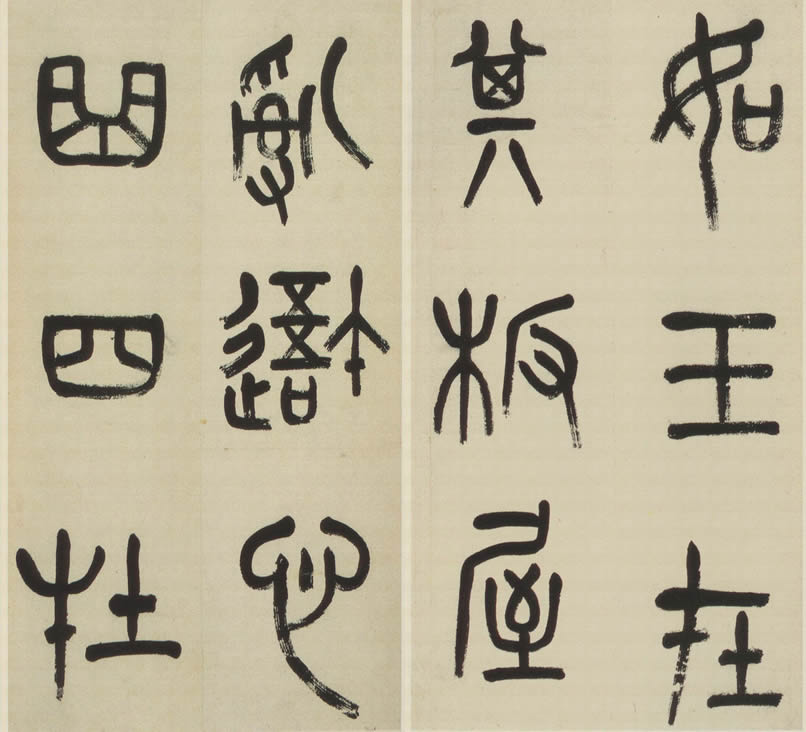 如玉在
其板屋
亂我心
曲四牡